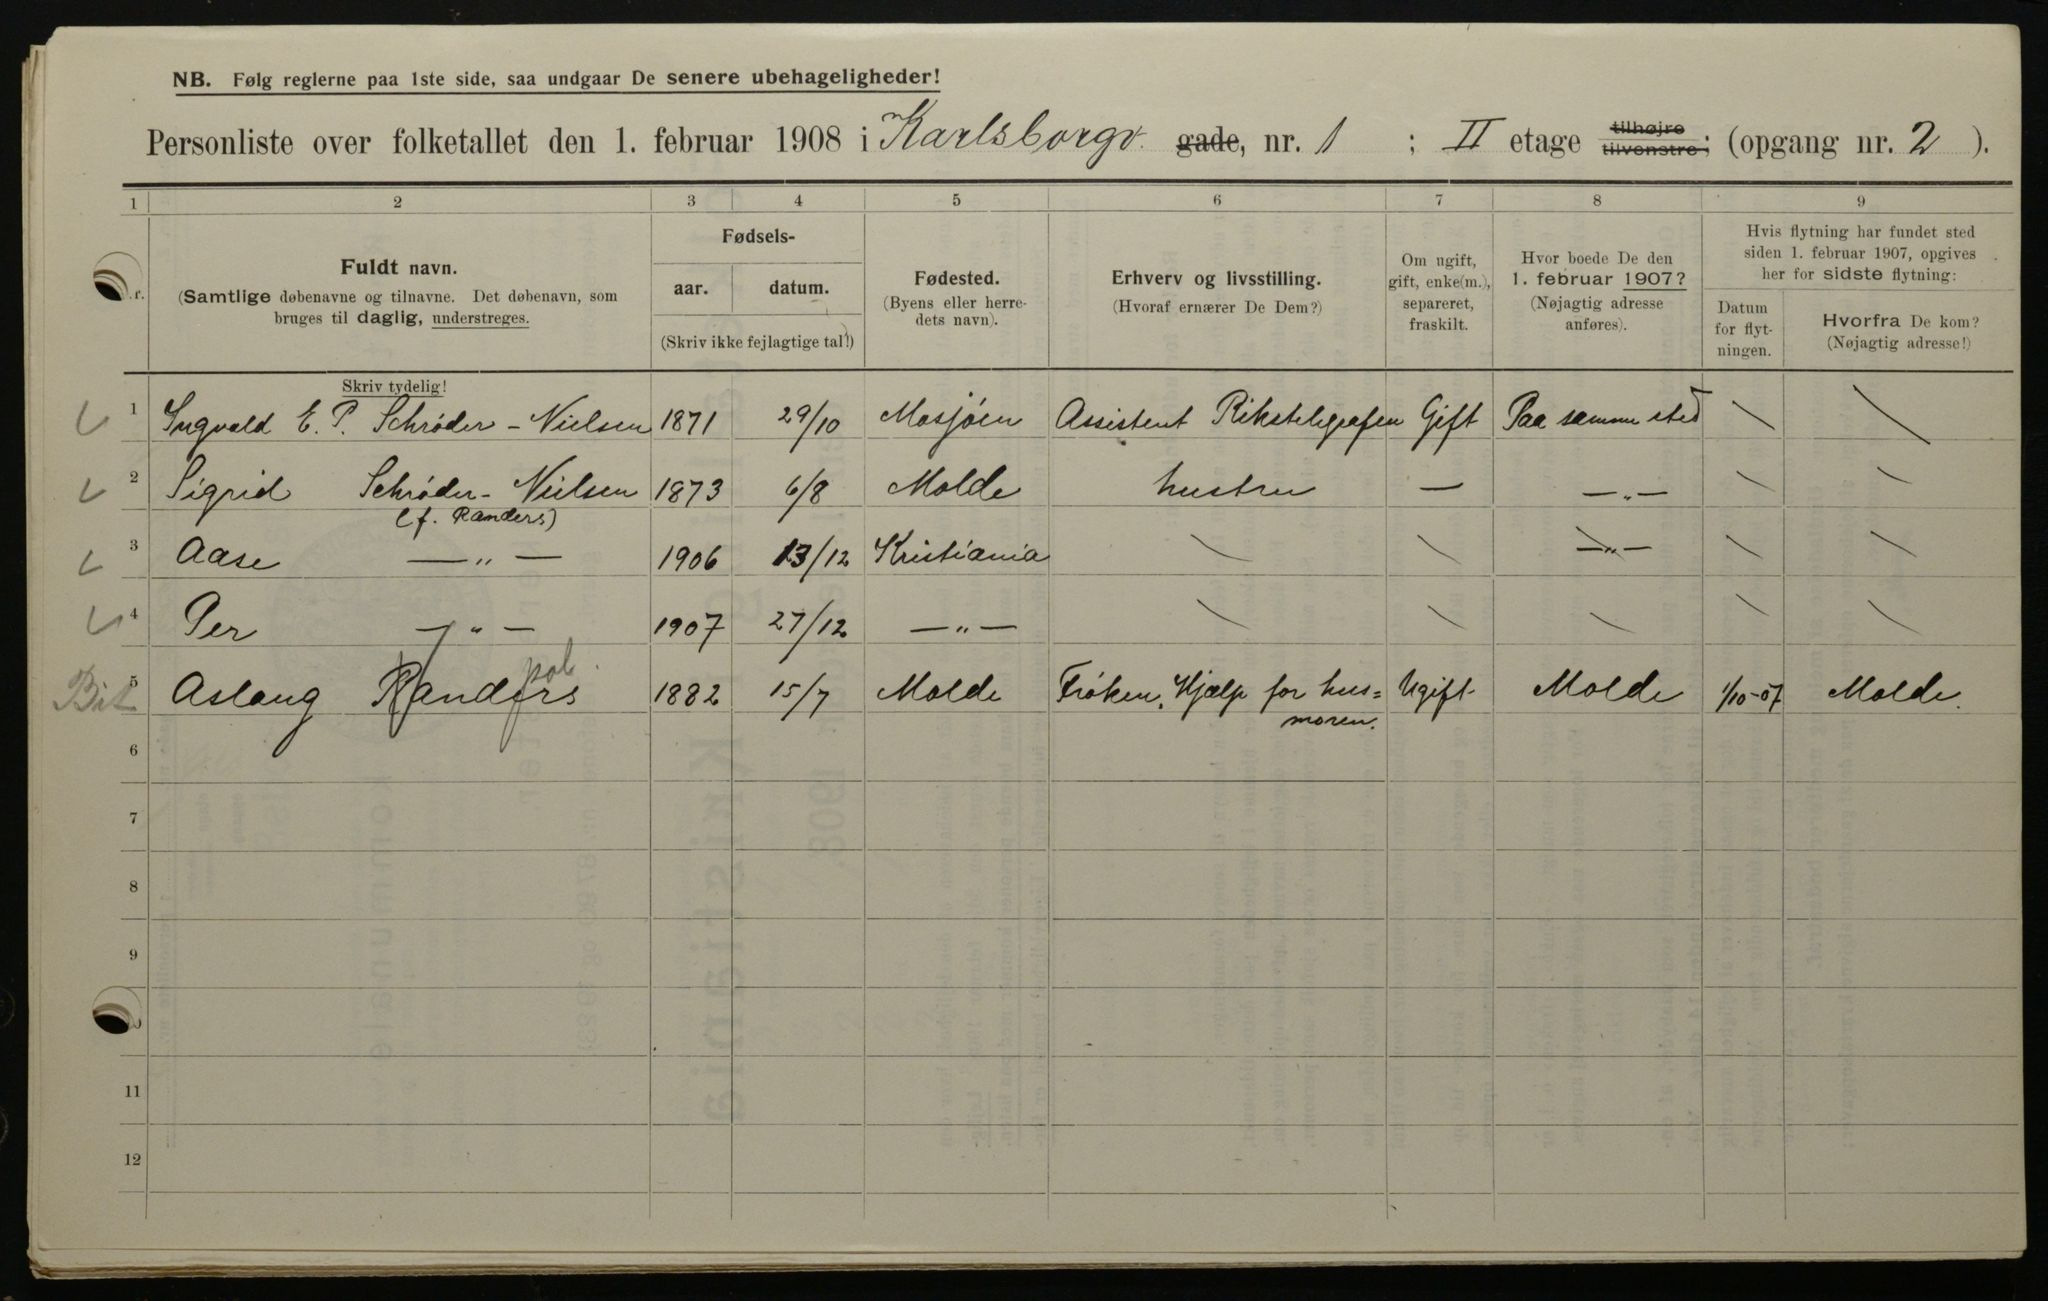 NB. Følg reglerne paa 1ste side, saa undgaar De senere ubehageligheder!
Personliste over folketallet den 1. februar 1908 i Karlsborgv. gade, nr. 1 ; II etage tilhøjre tilvenstre; (opgang nr. 2 ).
1 2 3 4 5 6 7 8 9
Fuldt navn.
(Samtlige døbenavne og tilnavne. Det døbenavn, som
bruges til daglig, understreges.
Skriv tydelig!
Fødsels-
aar. datum.
(Skriv ikke fejlagtige tal!)
Fødested.
(Byens eller herre-
dets navn).
Erhverv og livsstilling.
(Hvoraf ernærer De Dem?)
Om ugift,
gift, enke(m.),
separeret,
fraskilt.
Hvor boede De den
1. februar 1907?
(Nøjagtig adresse
anføres).
Hvis flytning har fundet sted
siden 1. februar 1907, opgives
her for sidste flytning:
Datum
for flyt-
ningen.
Hvorfra De kom?
(Nøjagtig adresse!)
1 Ingvald E. P. Schrøder - Nielsen 1871 29/10 Mosjøen Assistent Rikstelegrafen Gift Paa samme sted
2 Sigrid Schrøder - Nielsen 1873 6/8 Molde hustru — — " —
(f. Randers)
3 Aase — " — 1906 13/12 Kristiania — " —
4 Per — " — 1907 27/12 — " —
pol.
Bit 5 Aslaug Randers 1882 15/7 Molde Frøken, Hjælp for hus= Ugift Molde 1/10-07 Molde.
moren.
6
7
8
9
11
12